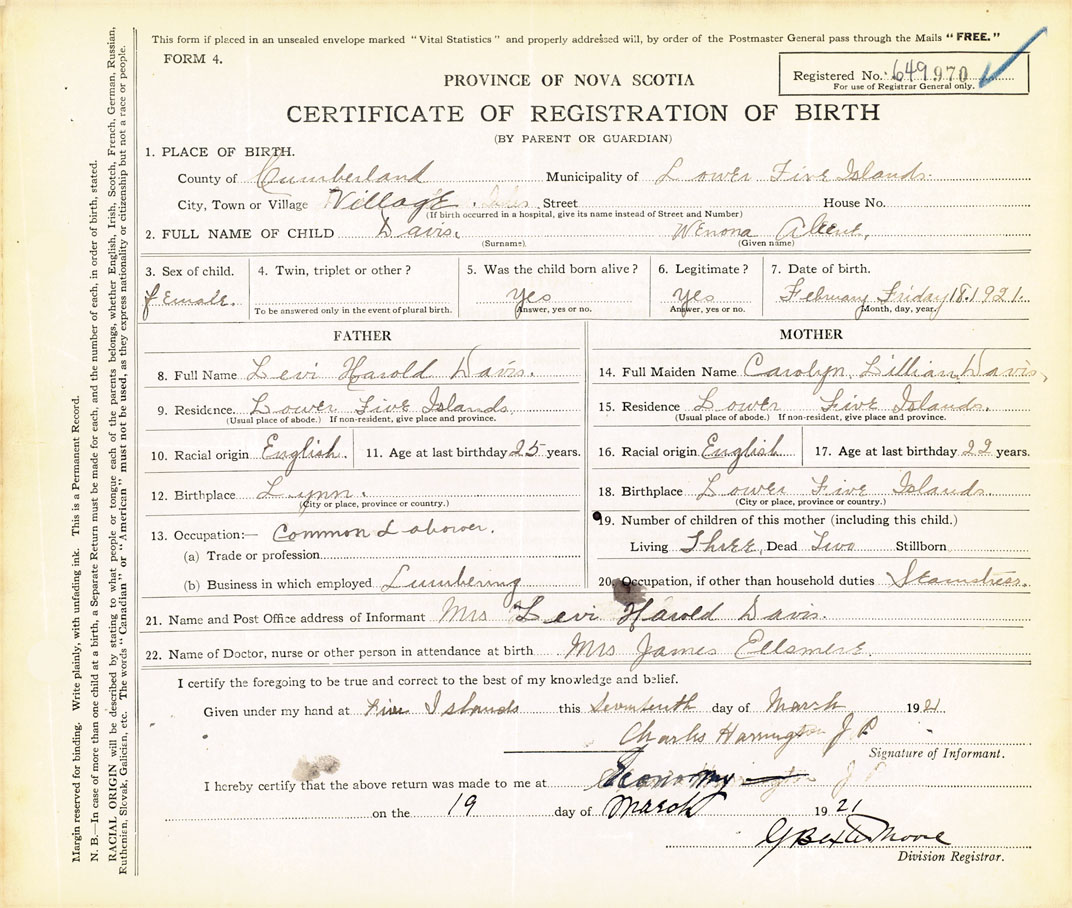 This form if placed in an unsealed envelope marked "Vital Statistics" and properly addressed will, by order of the Postmaster General pass through the Mails "FREE."
FORM 4.
Registered No. 649970
For use of Registrar General only.
PROVINCE OF NOVA SCOTIA
CERTIFICATE OF REGISTRATION OF BIRTH
(BY PARENT OR GUARDIAN)
1. PLACE OF BIRTH.
County of Cumberland Municipality of Lower Five Islands.
City, Town or Village Village Street House No.
(If birth occurred in a hospital, give its name instead of Street and Number)
2. FULL NAME OF CHILD Davis. Wenona
(Surname). (Given name)
3. Sex of child. 4. Twin, triplet or other? 5. Was the child born alive? 6. Legitimate? 7. Date of birth.
female. Yes Yes February Friday 18. 1921.
To be answered only in the event of plural birth. Answer, yes or no. Answer, yes or no. Month, day, year.
FATHER
8. Full Name Levi Harold Davis.
9. Residence. Lower Five Islands.
(Usual place of abode.) If non-resident, give place and province.
10. Racial origin English. 11. Age at last birthday 25 years.
12. Birthplace Lynn.
(City or place, province or country.)
13. Occupation:— Common Laborer.
(a) Trade or profession
(b) Business in which employed Lumbering
MOTHER
14. Full Maiden Name Carolyn Lillian Davis,
15. Residence Lower Five Islands.
(Usual place of abode.) If non-resident, give place and province.
16. Racial origin English 17. Age at last birthday 22 years.
18. Birthplace Lower Five Islands.
(City or place, province or country.)
19. Number of children of this mother (including this child.)
Living Three, Dead Two Stillborn
20. Occupation, if other than household duties Seamstress.
21. Name and Post Office address of Informant Mrs Levi Harold Davis.
22. Name of Doctor, nurse or other person in attendance at birth Mrs James Ellsmere.
I certify the foregoing to be true and correct to the best of my knowledge and belief.
Given under my hand at Five Islands this Seventeenth day of Marsh 1921
Charles Harrington J P
Signature of Informant.
I hereby certify that the above return was made to me at Economy J P
on the 19 day of March 1921
Moore
Division Registrar.
Margin reserved for binding. Write plainly, with unfading ink. This is a Permanent Record.
N. B.—In case of more than one child at a birth, a Separate Return must be made for each, and the number of each, in order of birth, stated.
RACIAL ORIGIN will be described by stating to what people or tongue each of the parents belongs, whether English, Irish, Scotch, French, German, Russian,
Ruthenian, Slovak, Galician, etc. The words "Canadian" or "American" must not be used, as they express nationality or citizenship but not a race or people.